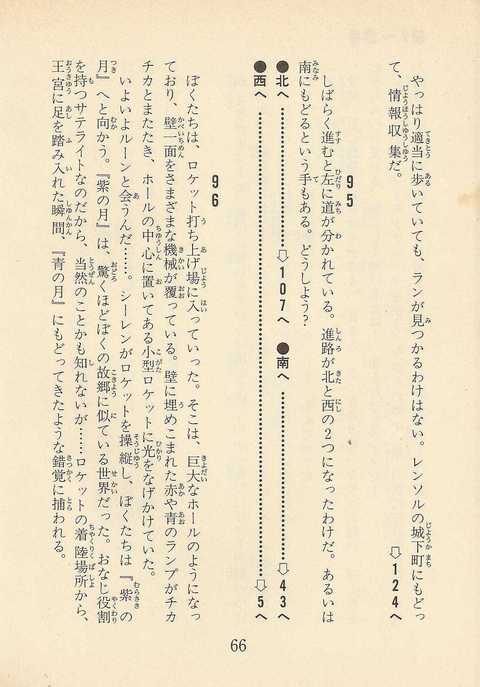 やっぱり適当に歩いていても、ランが見つかるわけはない。レンソルの城下町にもどっ
て、情報収集だ。
⇨124へ
95
しばらく進むと左に道が分かれている。進路が北と西の2つになったわけだ。あるいは
南にもどるという手もある。どうしよう?
●北へ…………⇨107へ ●南へ…………⇨43へ
●西へ…………⇨5へ
96
ぼくたちは、ロケット打ち上げ場に入っていった。そこは、巨大なホールのようになっ
ており、壁一面をさまざまな機械が覆っている。壁に埋めこまれた赤や青のランプがチカ
チカとまたたき、ホールの中心に置いてある小型ロケットに光をなげかけていた。
いよいよルーンと会うんだ……。シーレンがロケットを操縦し、ぼくたちは『紫の
月』へと向かう。『紫の月』は、驚くほどぼくの故郷に似ている世界だった。おなじ役割
を持つサテライトなのだから、当然のことかも知れないが……ロケットの着陸場所から、
王宮に足を踏み入れた瞬間、『青の月』にもどってきたような錯覚に捕われる。
66